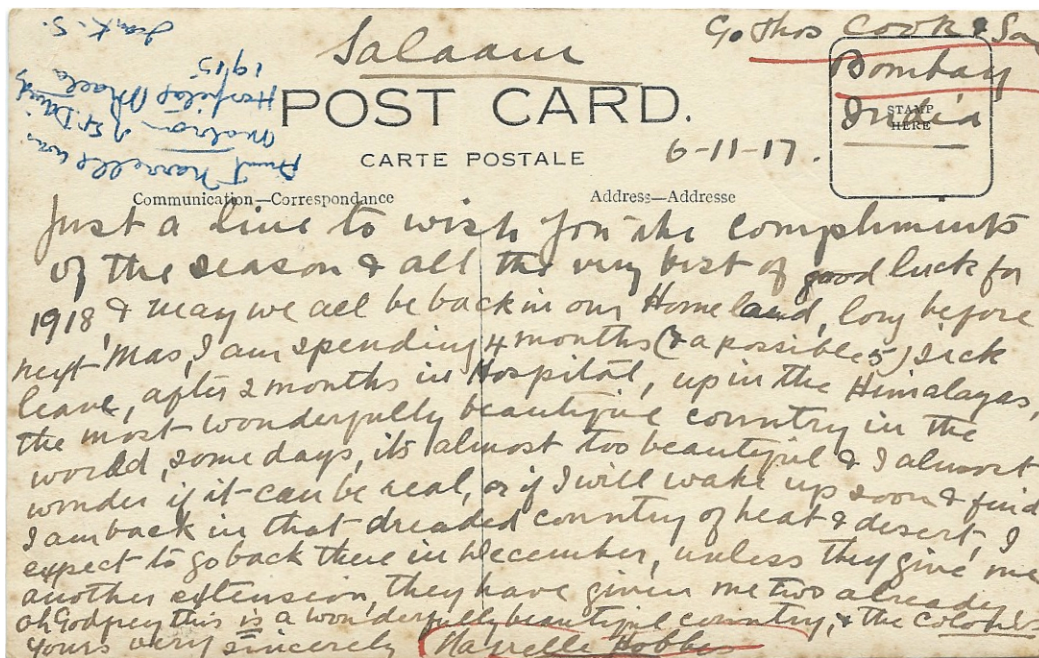 Salaam
C/o Thos Cook & Son
Bombay
India
STAMP
HERE
POST CARD.
CARTE POSTALE
6-11-17.
Aunt Narrelle was
Matron of St. David's
Hospital Malta
1915
Communication—Correspondance
Address—Addresse
Just a line to wish you the compliments
of the season & all the very best of good luck for
1918 & may we all be back in our Homeland, long before
next 'Mas, I am spending 4 months (& a possible 5) sick
leave, after 2 months in Hospital, up in the Himalayas,
the most wonderfully beautiful country in the
world, some days, its almost too beautiful & I almost
wonder if it can be real, or if I will wake up soon & find
I am back in that dreaded country of heat & desert, I
expect to go back there in December, unless they give me
another extension, they have given me two already
oh Godfrey this is a wonderfully beautiful country, & the colours
Yours very sincerely Narrelle Hobbes